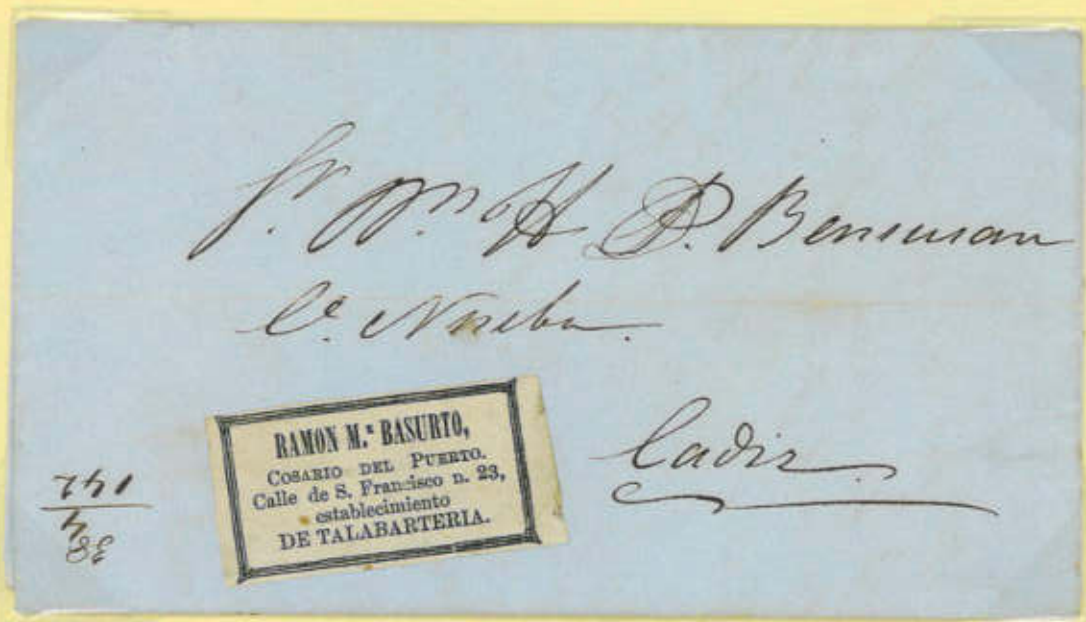 Sr. Dn. H. P. Bensusan
Ce. Nueba.
Cadiz
RAMON M.ª BASURTO,
COSARIO DEL PUERTO.
Calle de S. Francisco n. 23,
establecimiento
DE TALABARTERIA.